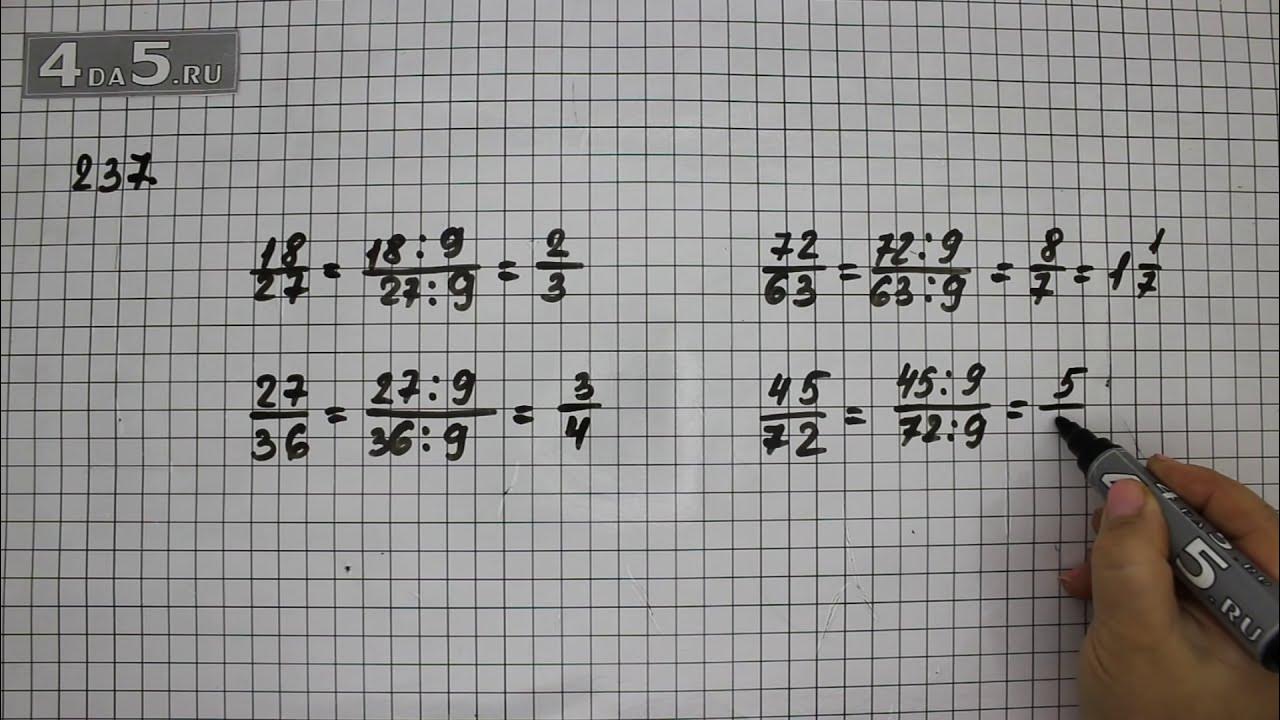 4DA5.RU
237
18/27 = 18:9/27:9 = 2/3
72/63 = 72:9/63:9 = 8/7 = 1 1/7
27/36 = 27:9/36:9 = 3/4
45/72 = 45:9/72:9 = 5/
5.RU